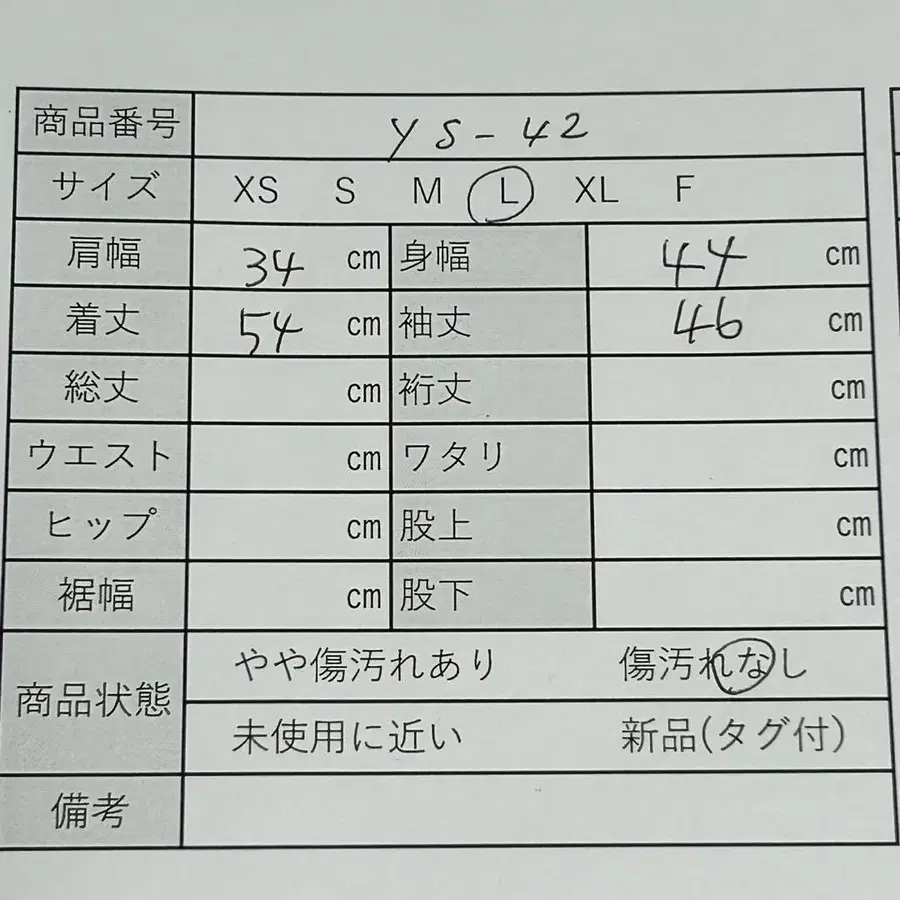 商品番号 YS-42
サイズ XS S M L XL F
肩幅 34 cm 身幅 44 cm
着丈 54 cm 袖丈 46 cm
総丈 cm 裄丈 cm
ウエスト cm ワタリ cm
ヒップ cm 股上 cm
裾幅 cm 股下 cm
商品状態 やや傷汚れあり 傷汚れなし
未使用に近い 新品(タグ付)
備考